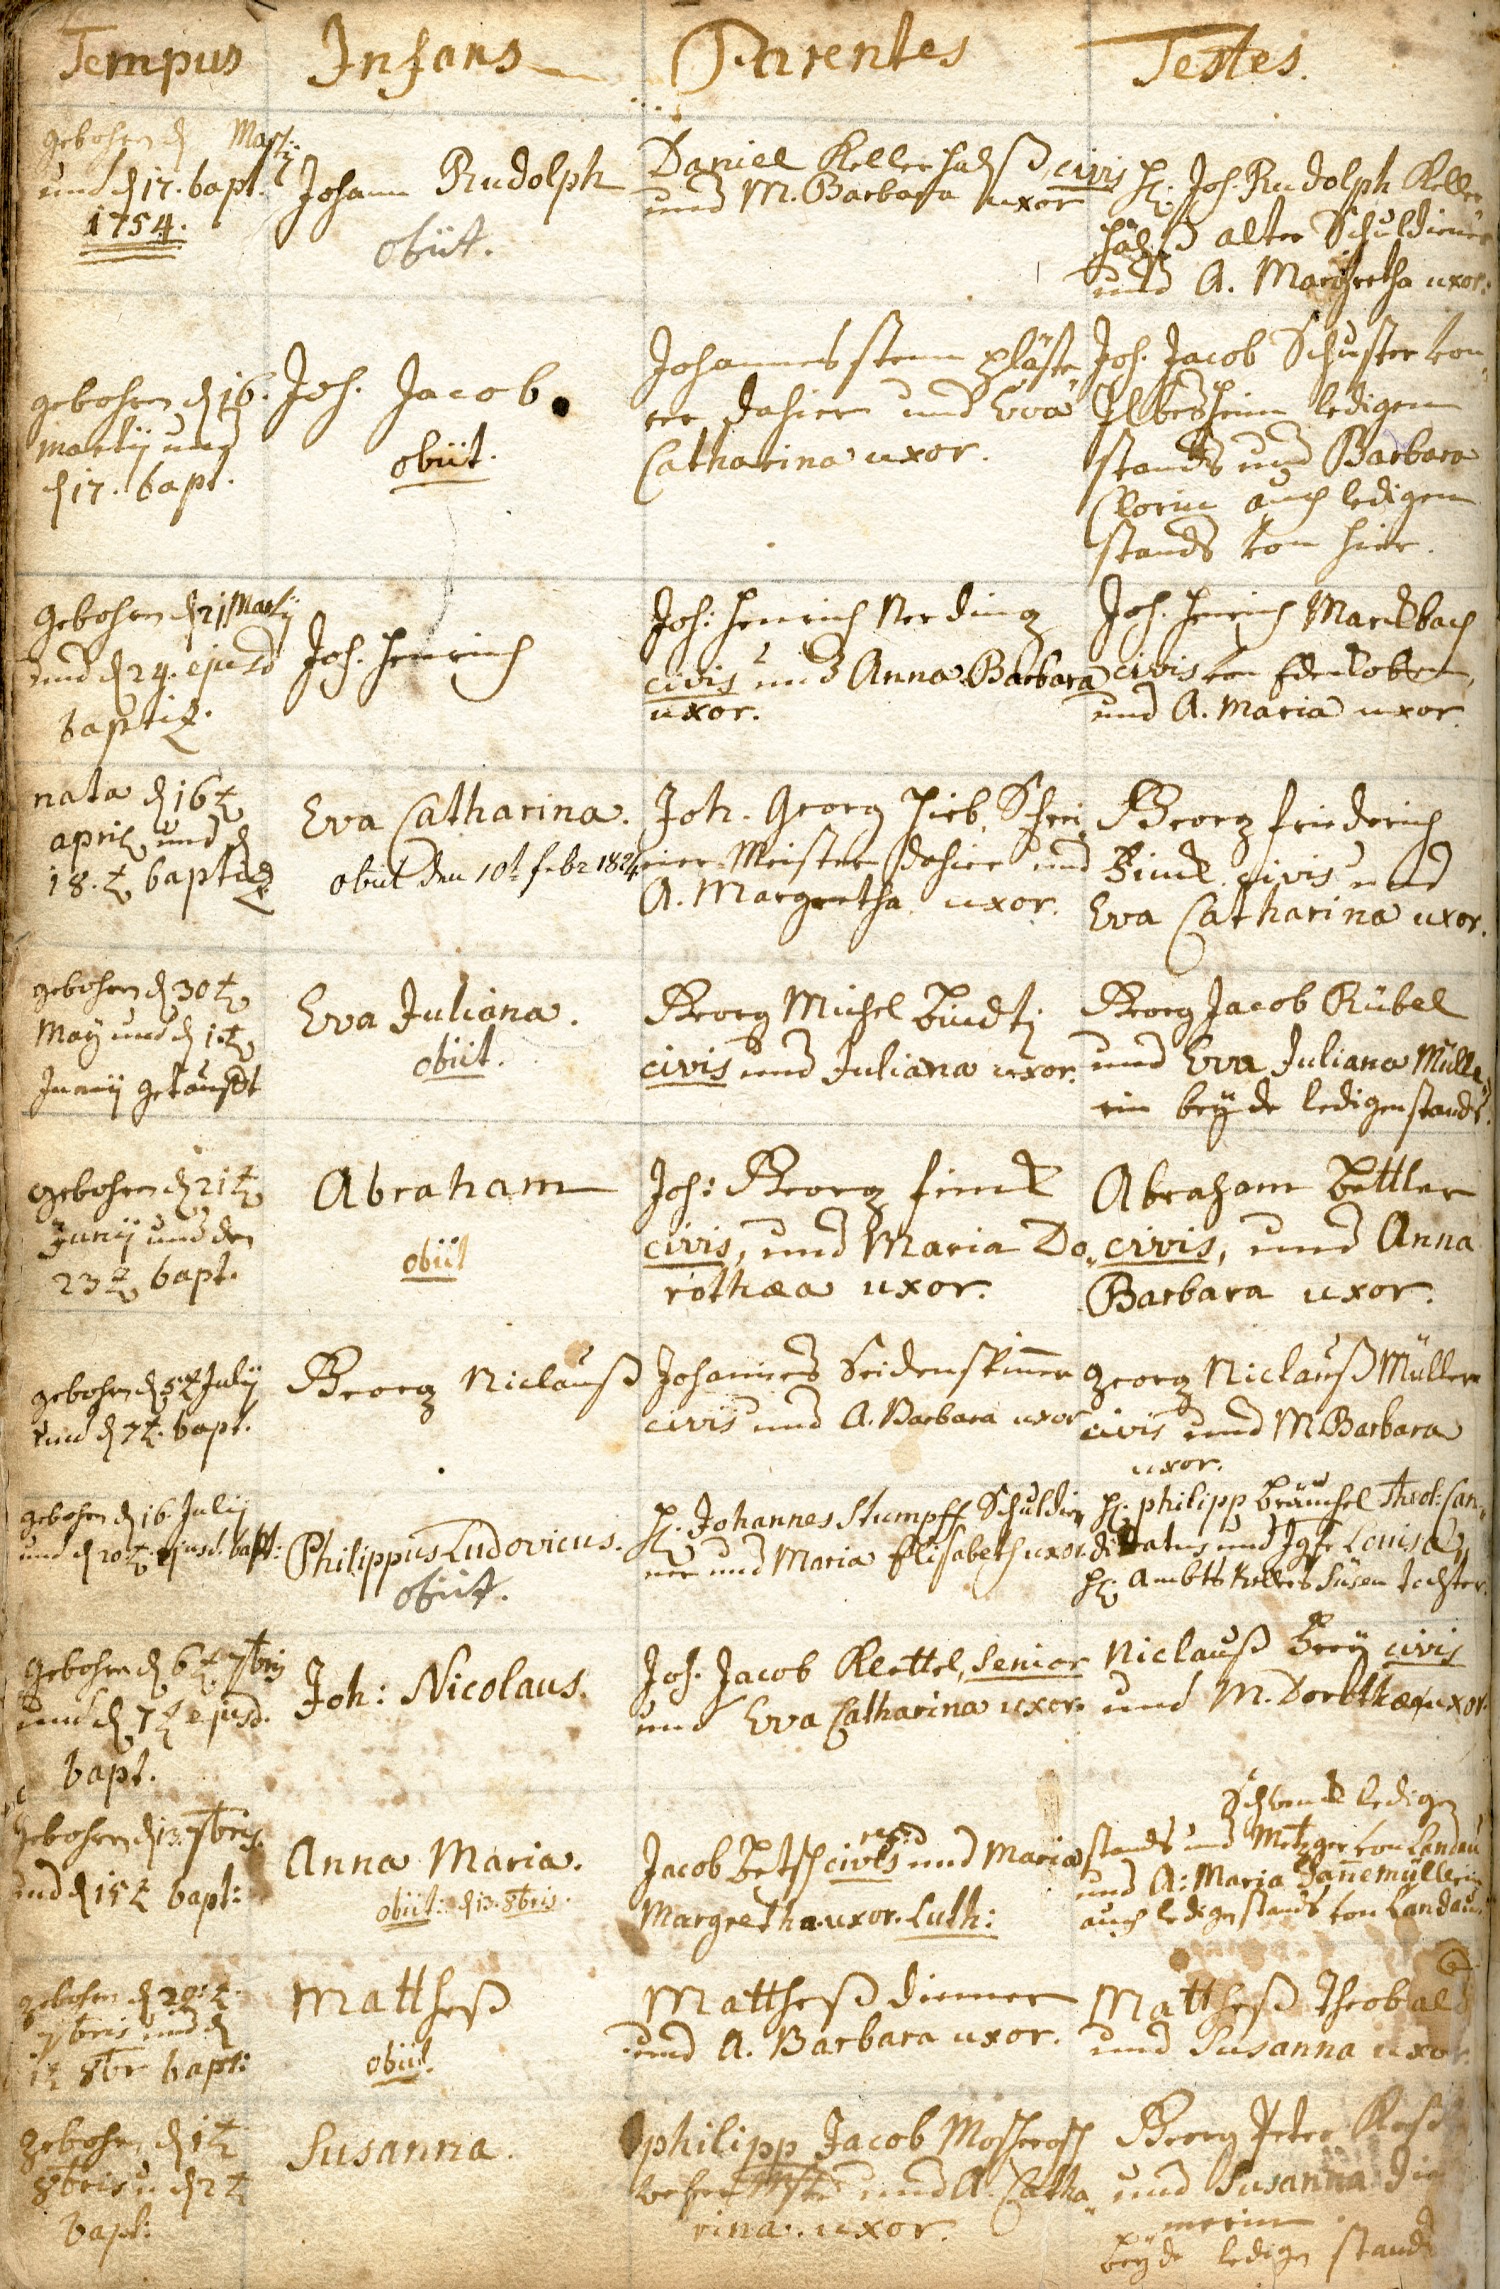 Tempus Infans Parentes Testes.
gebohren d Martij
und d 17. bapt.
1754.
Johann Rudolph
obiit.
Daniel Keller civis
und M. Barbara uxor
H: Joh. Rudolph Keller
alter Schuldiener
und A. Margretha uxor:
gebohren d 16.
Martij und
d 17. bapt.
Joh. Jacob.
obiit.
Johannes Stem pläste
rer dahier und Eva
Catharina uxor.
Joh. Jacob Schuster von
Ilbesheim ledigen
stands und Barbara
Clorin auch ledigen
stands von hier.
gebohren d 21 Martij
und d 24. ejusd
baptiz.
Joh. Henrich
Joh: Henrich Nerding
civis und Anna Barbara
uxor.
Joh. Henrich Marckbach
civis von Edenkoben,
und A. Maria uxor.
nata d 16t
april und d
18.t baptiz
Eva Catharina.
obiit den 10t febr 1824.
Joh. Georg Hieb, Schrei
ner Meister dahier und
A. Margretha uxor.
Georg Friederich
Finck civis und
Eva Catharina uxor.
gebohren d 30t
May und d 1.t
Junij getaufft
Eva Juliana.
obiit.
Georg Michel
civis und Juliana uxor.
Georg Jacob Kübel
und Eva Juliana Mülle,,
rin beyde ledigen stands.
gebohren d 21t
Junij und den
23t bapt.
Abraham
obiit
Joh: Georg Finck
civis, und Maria Do,,
rothæa uxor.
Abraham Bettler
civis, und Anna
Barbara uxor.
gebohren d 5t July
und d 7t. bapt.
Georg Niclauß
Johannes Seidenspinner
civis und A. Barbara uxor
Georg Niclauß Müller
civis und M Barbara
uxor.
gebohren d 16. July
und d 20t. ejusd. bapt:
Philippus Ludovicus.
obiit.
H. Johannes Stumpff Schuldie,,
ner und Maria Elisabeth uxor.
H. philipp Bräuchel Theol: Can,,
didatus und Jgfr Louisa,
H. Ambts Kellers Süsen tochter.
gebohren d 6t 7bris
und d 7t ejusd.
bapt.
Joh: Nicolaus.
Joh. Jacob Klettel, Senior
und Eva Catharina uxor.
Niclauß Brey civis
und M. Dorothæa uxor.
gebohren d 13. 7bris.
und d 15t bapt:
Anna Maria.
obiit: d 13. 8bris.
Jacob Betsch civis und Maria
Margretha uxor. Luth:
Schwenck ledigen
stands und Metzger von Landau
und A: Maria
auch ledigen stands von Landau.
gebohren d 20t.
7bris und d
1t 8br bapt:
Mattheß
obiit.
Mattheß Diemer
und A. Barbara uxor.
Mattheß Theobald
und Susanna uxor.
gebohren d 1t
8bris u d 2t
bapt:
Susanna.
philipp Jacob Moscherosch
und A. Catha,,
rina uxor.
Georg Peter
und Susanna Die
merin
beyde ledigen stands